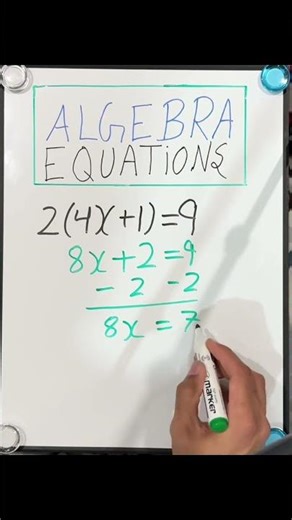 ALGEBRA
EQUATIONS
2(4x+1)=9
8x+2=9
-2 -2
8x=7
marker